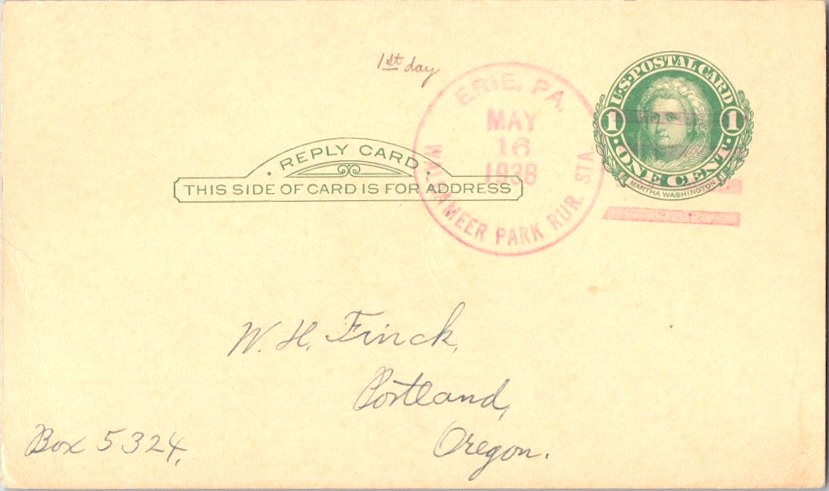 1st day
ERIE, PA.
MAY
16
1938
WALDAMEER PARK RUR. STA.
U.S. POSTAL CARD
1 1
ONE CENT
MARTHA WASHINGTON
REPLY CARD
THIS SIDE OF CARD IS FOR ADDRESS
W. H. Finck,
Portland,
Oregon.
Box 5324,